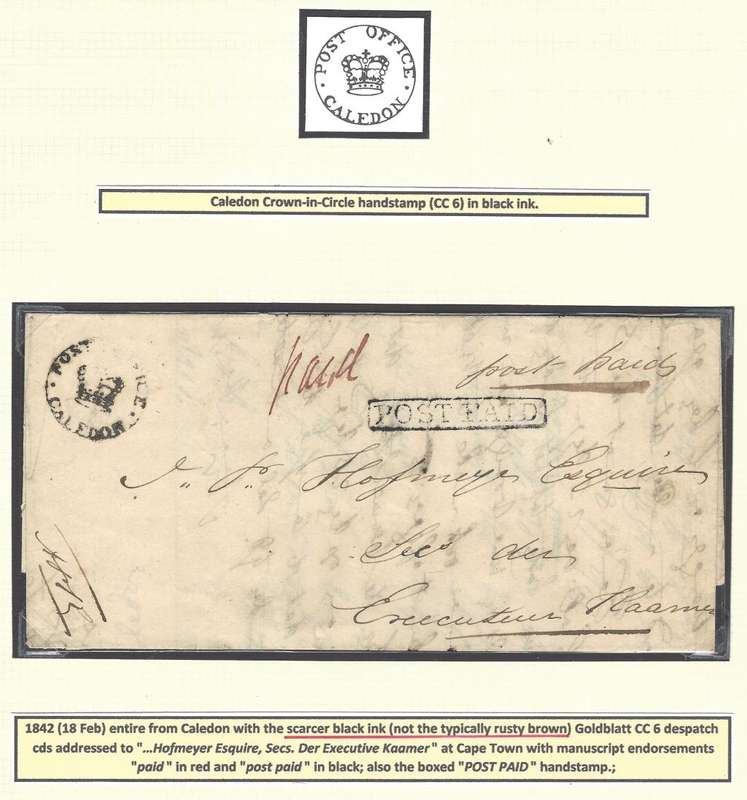 POST OFFICE
CALEDON
Caledon Crown-in-Circle handstamp (CC 6) in black ink.
POST ICE
CALEDON
paid
post paid
POST PAID
Hofmeyer Esquire
Secs der
Executeur Kaamer
1842 (18 Feb) entire from Caledon with the scarcer black ink (not the typically rusty brown) Goldblatt CC 6 despatch
cds addressed to "...Hofmeyer Esquire, Secs. Der Executive Kaamer" at Cape Town with manuscript endorsements
"paid" in red and "post paid" in black; also the boxed "POST PAID" handstamp.;